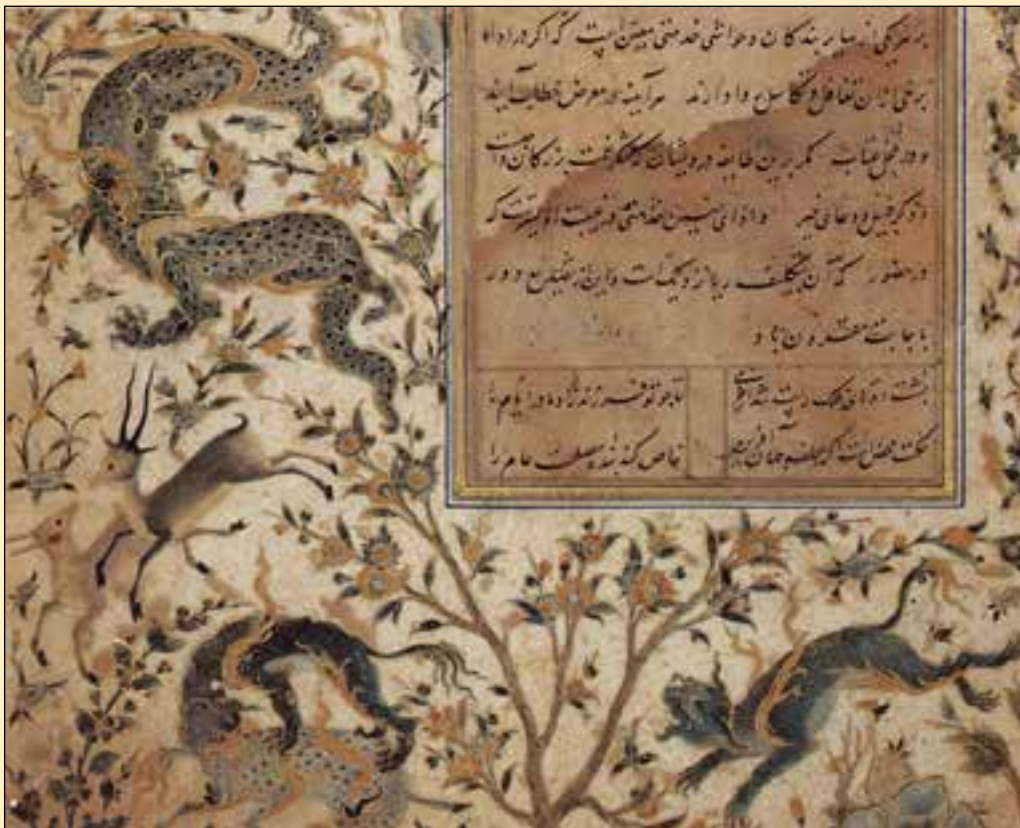 بر هر یکی از سایر بندگان و حواشی خدمتی معین است که اگر در اداء
برخی از آن تغافل و تکاسل روا دارند هرآینه در معرض خطاب آیند
و در محل عتاب مگر برین طایفه درویشان که شکر نعمت بزرگان واجب است
و ذکر جمیل و دعای خیر و ادای چنین خدمتی در غیبت اولیترست که
در حضور که آن بتکلف نزدیکست و این از تصنع دور
باجابت مقرون باد
پشت دوتای فلک راست شد از خرمی تا چو تو فرزند زاد مادر ایام را
حکمت محض است اگر لطف جهان آفرین خاص کند بنده مصلحت عام را